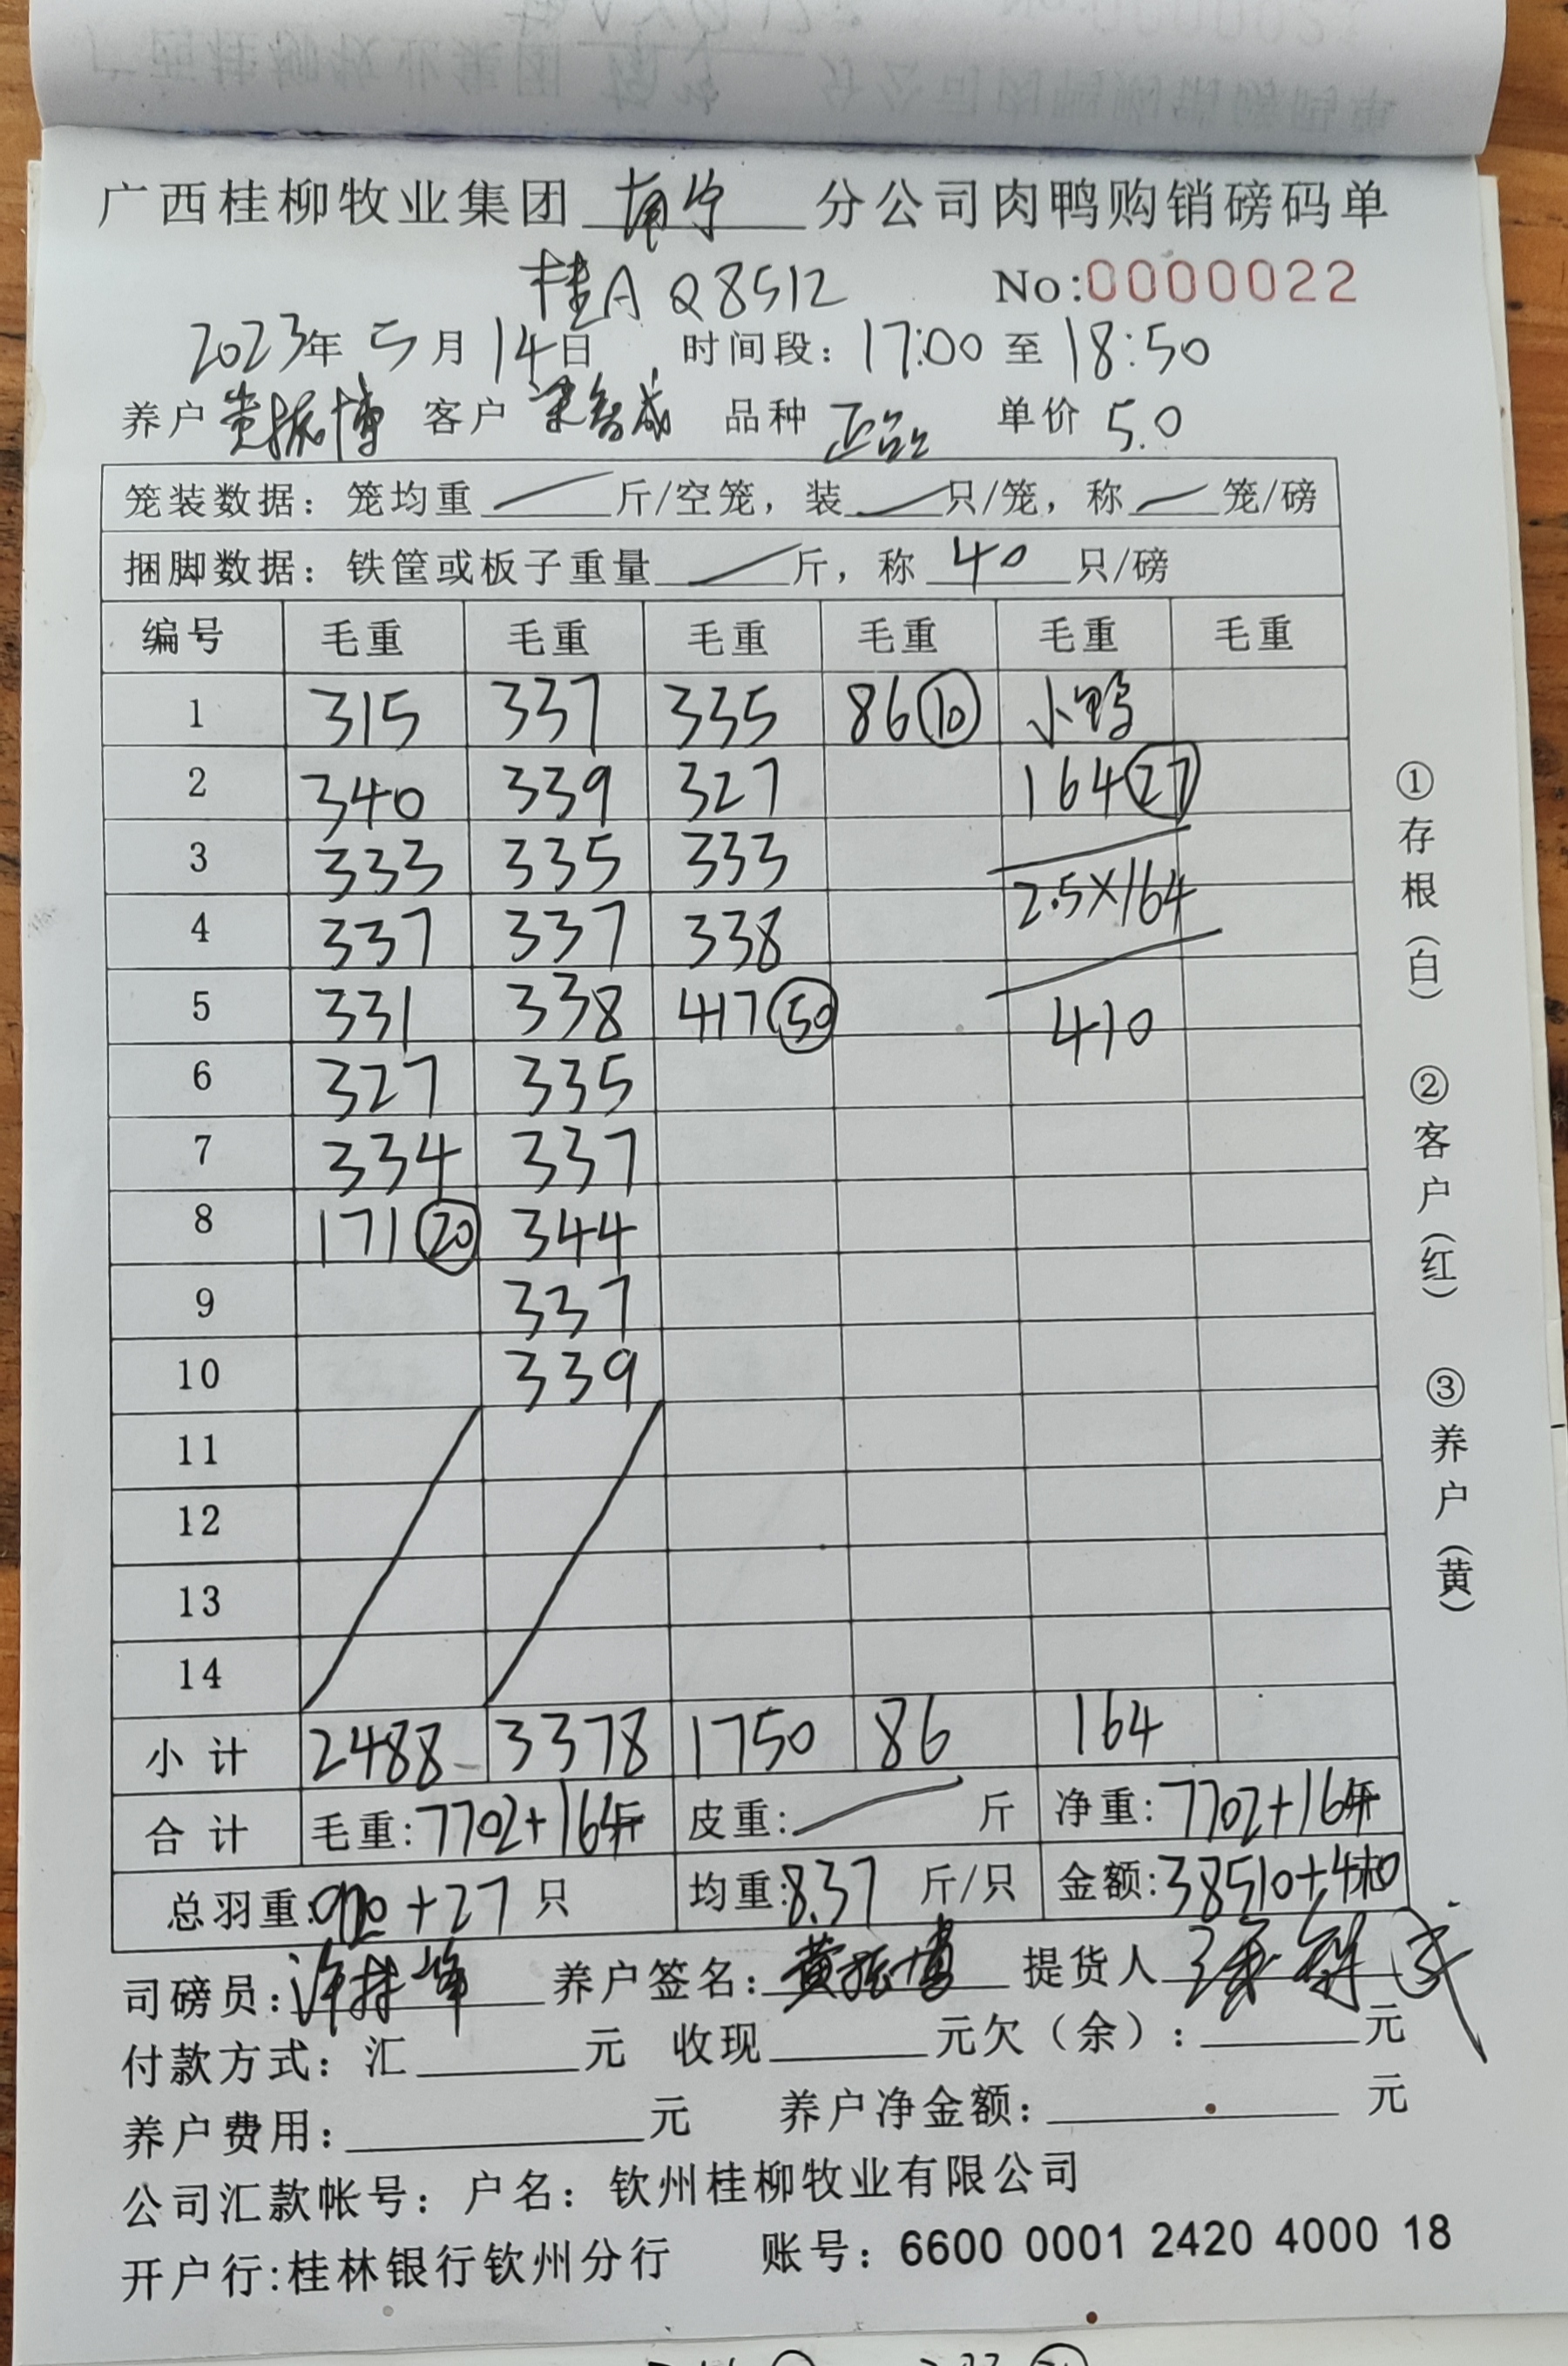 广西桂柳牧业集团 南宁 分公司肉鸭购销磅码单
桂A Q8512 No:0000022
2023年 5月 14日 时间段：17:00 至 18:50
养户 黄振博 客户 梁智成 品种 正品 单价 5.0
笼装数据：笼均重 斤/空笼，装 只/笼，称 笼/磅
捆脚数据：铁筐或板子重量 斤，称 40 只/磅
编号 毛重 毛重 毛重 毛重 毛重 毛重
1 315 337 335 86⑩ 小鸭
2 340 339 327 164㉗
3 333 335 333
2.5×164
4 337 337 338
5 331 338 417㊿ 410
6 327 335
7 334 337
8 171⑳ 344
9 337
10 339
11
12
13
14
小计 2488 3378 1750 86 164
合计 毛重:7702+164斤 皮重: 斤 净重:7702+164斤
总羽重:920+27 只 均重:8.37 斤/只 金额:38510+410
司磅员: 养户签名:黄振博 提货人
付款方式：汇 元 收现 元欠（余）: 元
养户费用: 元 养户净金额: 元
公司汇款帐号：户名：钦州桂柳牧业有限公司
开户行:桂林银行钦州分行 账号：6600 0001 2420 4000 18
①存根（白） ②客户（红） ③养户（黄）